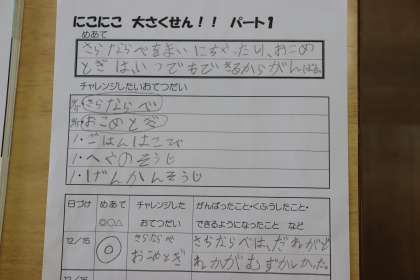 にこにこ 大さくせん！！ パート１
めあて
さらならべをまい にちやったり、おこめ
とぎは、いつでもできるからがんばる。
チャレンジしたいおてつだい
さらならべ
おこめとぎ
１・ごはんはこび
１・へやのそうじ
１・げんかんそうじ
日づけ めあて チャレンジした がんばったこと・くふうしたこと・
◎○△ おてつだい できるようになったこと など
12/15 ◎ さらならべ さらならべは、だれがど
おこめとぎ れかがむずかしかった。